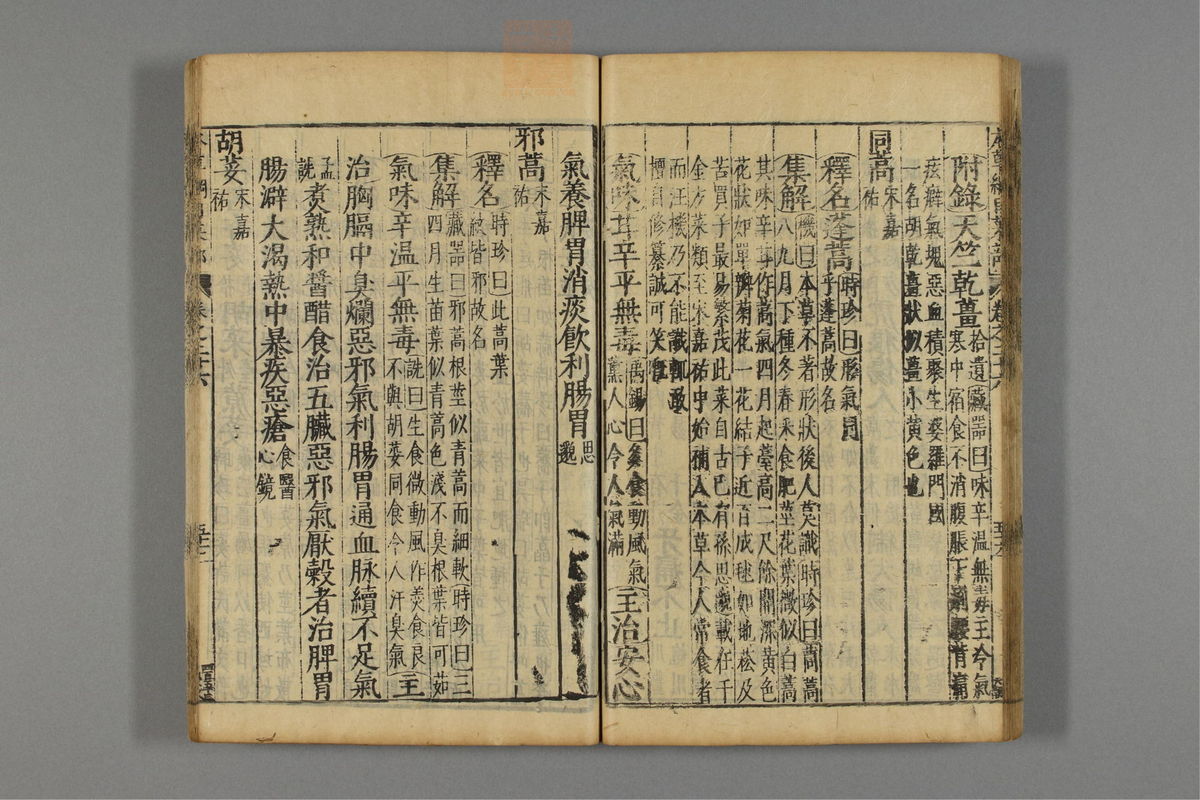 附錄天竺乾薑拾遺藏器曰味辛溫無毒主冷氣寒中宿食不消腹脹下
痃癖氣塊惡血積聚生婆羅門國
一名胡乾薑狀似薑小黃色也
同蒿宋嘉祐
釋名蓬蒿時珍曰形氣同乎蓬蒿故名
集解機曰本草不著形狀後人莫識時珍曰蒿蒿八九月下種冬春采食肥莖花葉微似白蒿
其味辛甘作蒿氣四月起薹高二尺餘開深黃色花狀如單瓣菊花一花結子近百成毬如地菘及
苦蕒子最易繁茂此菜自古已有孫思邈載在千金方菜類至宋嘉祐中始補入本草今人常食者
而汪機乃不能識輒敢擅自修纂誠可笑
氣味甘辛平無毒禹錫曰多食動風氣熏人心令人氣滿主治安心
氣養脾胃消痰飲利腸胃思邈
邪蒿宋嘉祐
釋名時珍曰此蒿葉紋皆邪故名
集解藏器曰邪蒿根莖似青蒿而細軟時珍曰三四月生苗葉似青蒿色淺不臭根葉皆可茹
氣味辛溫平無毒詵曰生食微動風作羹食良不與胡荽同食令人汗臭氣主
治胸膈中臭爛惡邪氣利腸胃通血脉續不足氣
孟詵煮熟和醬醋食治五臟惡邪氣厭穀者治脾胃
腸澼大渴熱中暴疾惡瘡食醫心鏡
胡荽宋嘉祐